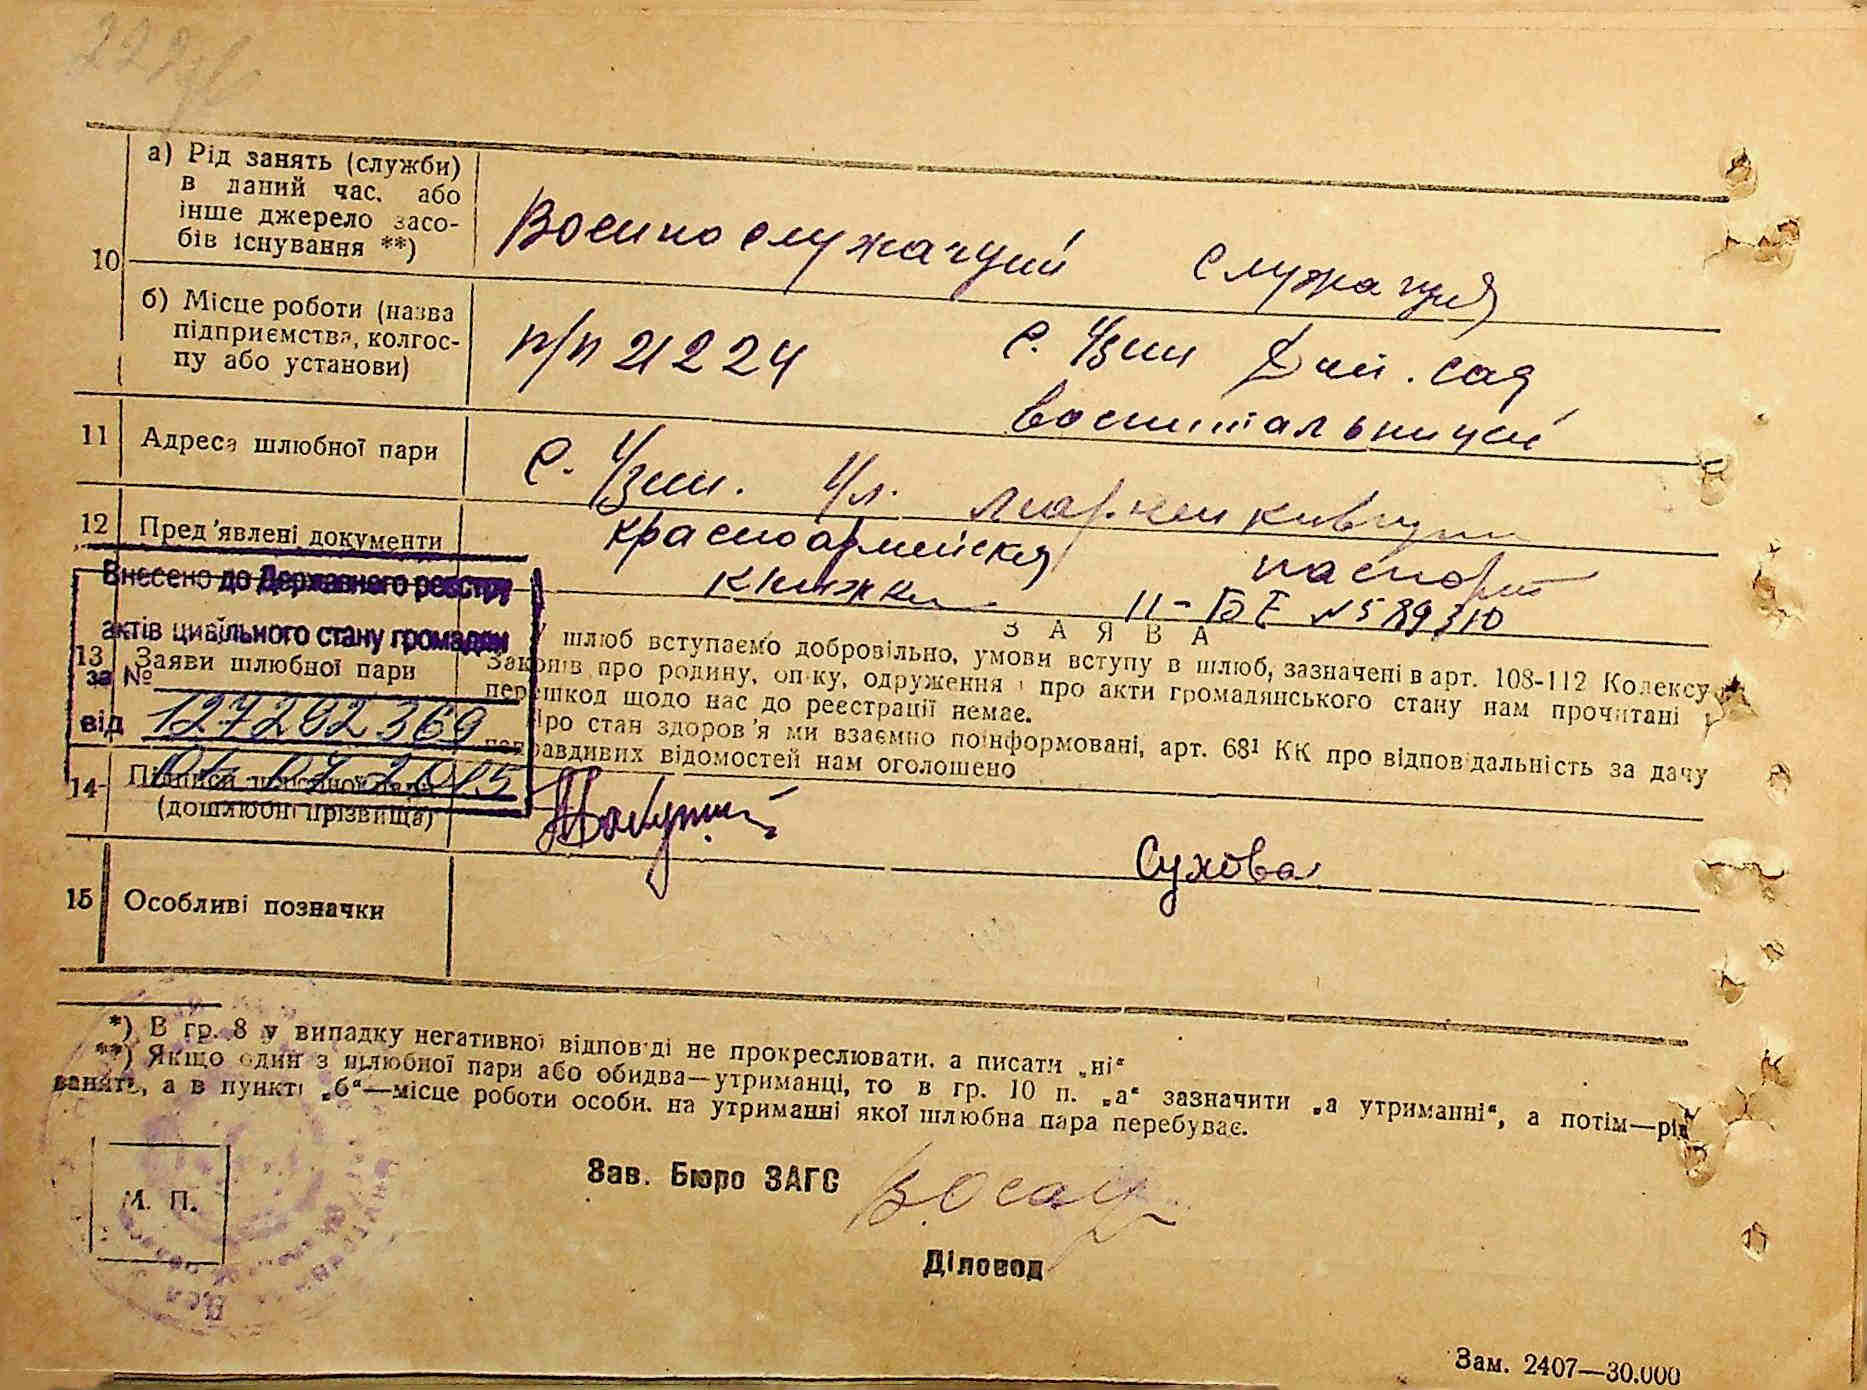 а) Рід занять (служби)
в даний час, або
інше джерело засо-
бів існування **)
10
Военнослужащий служащая
б) Місце роботи (назва
підприємства, колгос-
пу або установи)
п/п 21224 с. Узин Дит. сад
воспитальницей
11 Адреса шлюбної пари
с. Узин. Ул.
12 Пред'явлені документи
красноармейская паспорт
книжка II-БЕ №589310
Внесено до Державного реєстру
актів цивільного стану громадян
за №
127202369
від
01 07 2015
13 Заяви шлюбної пари
З А Я В А
У шлюб вступаємо добровільно, умови вступу в шлюб, зазначені в арт. 108-112 Кодексу
Законів про родину, опіку, одруження і про акти громадянського стану нам прочитані і
перешкод щодо нас до реєстрації немає.
Про стан здоров'я ми взаємно поінформовані, арт. 68¹ КК про відповідальність за дачу
неправдивих відомостей нам оголошено
14 Підписи шлюбної пари
(дошлюбні прізвища)
Сухова
15 Особливі позначки
*) В гр. 8 у випадку негативної відповіді не прокреслювати, а писати „ні“
**) Якщо один з шлюбної пари або обидва—утриманці, то в гр. 10 п. „а“ зазначити „а утриманні“, а потім—рід
занять, а в пункті „б“—місце роботи особи, на утриманні якої шлюбна пара перебуває.
М. П.
Зав. Бюро ЗАГС
Діловод
Зам. 2407—30.000